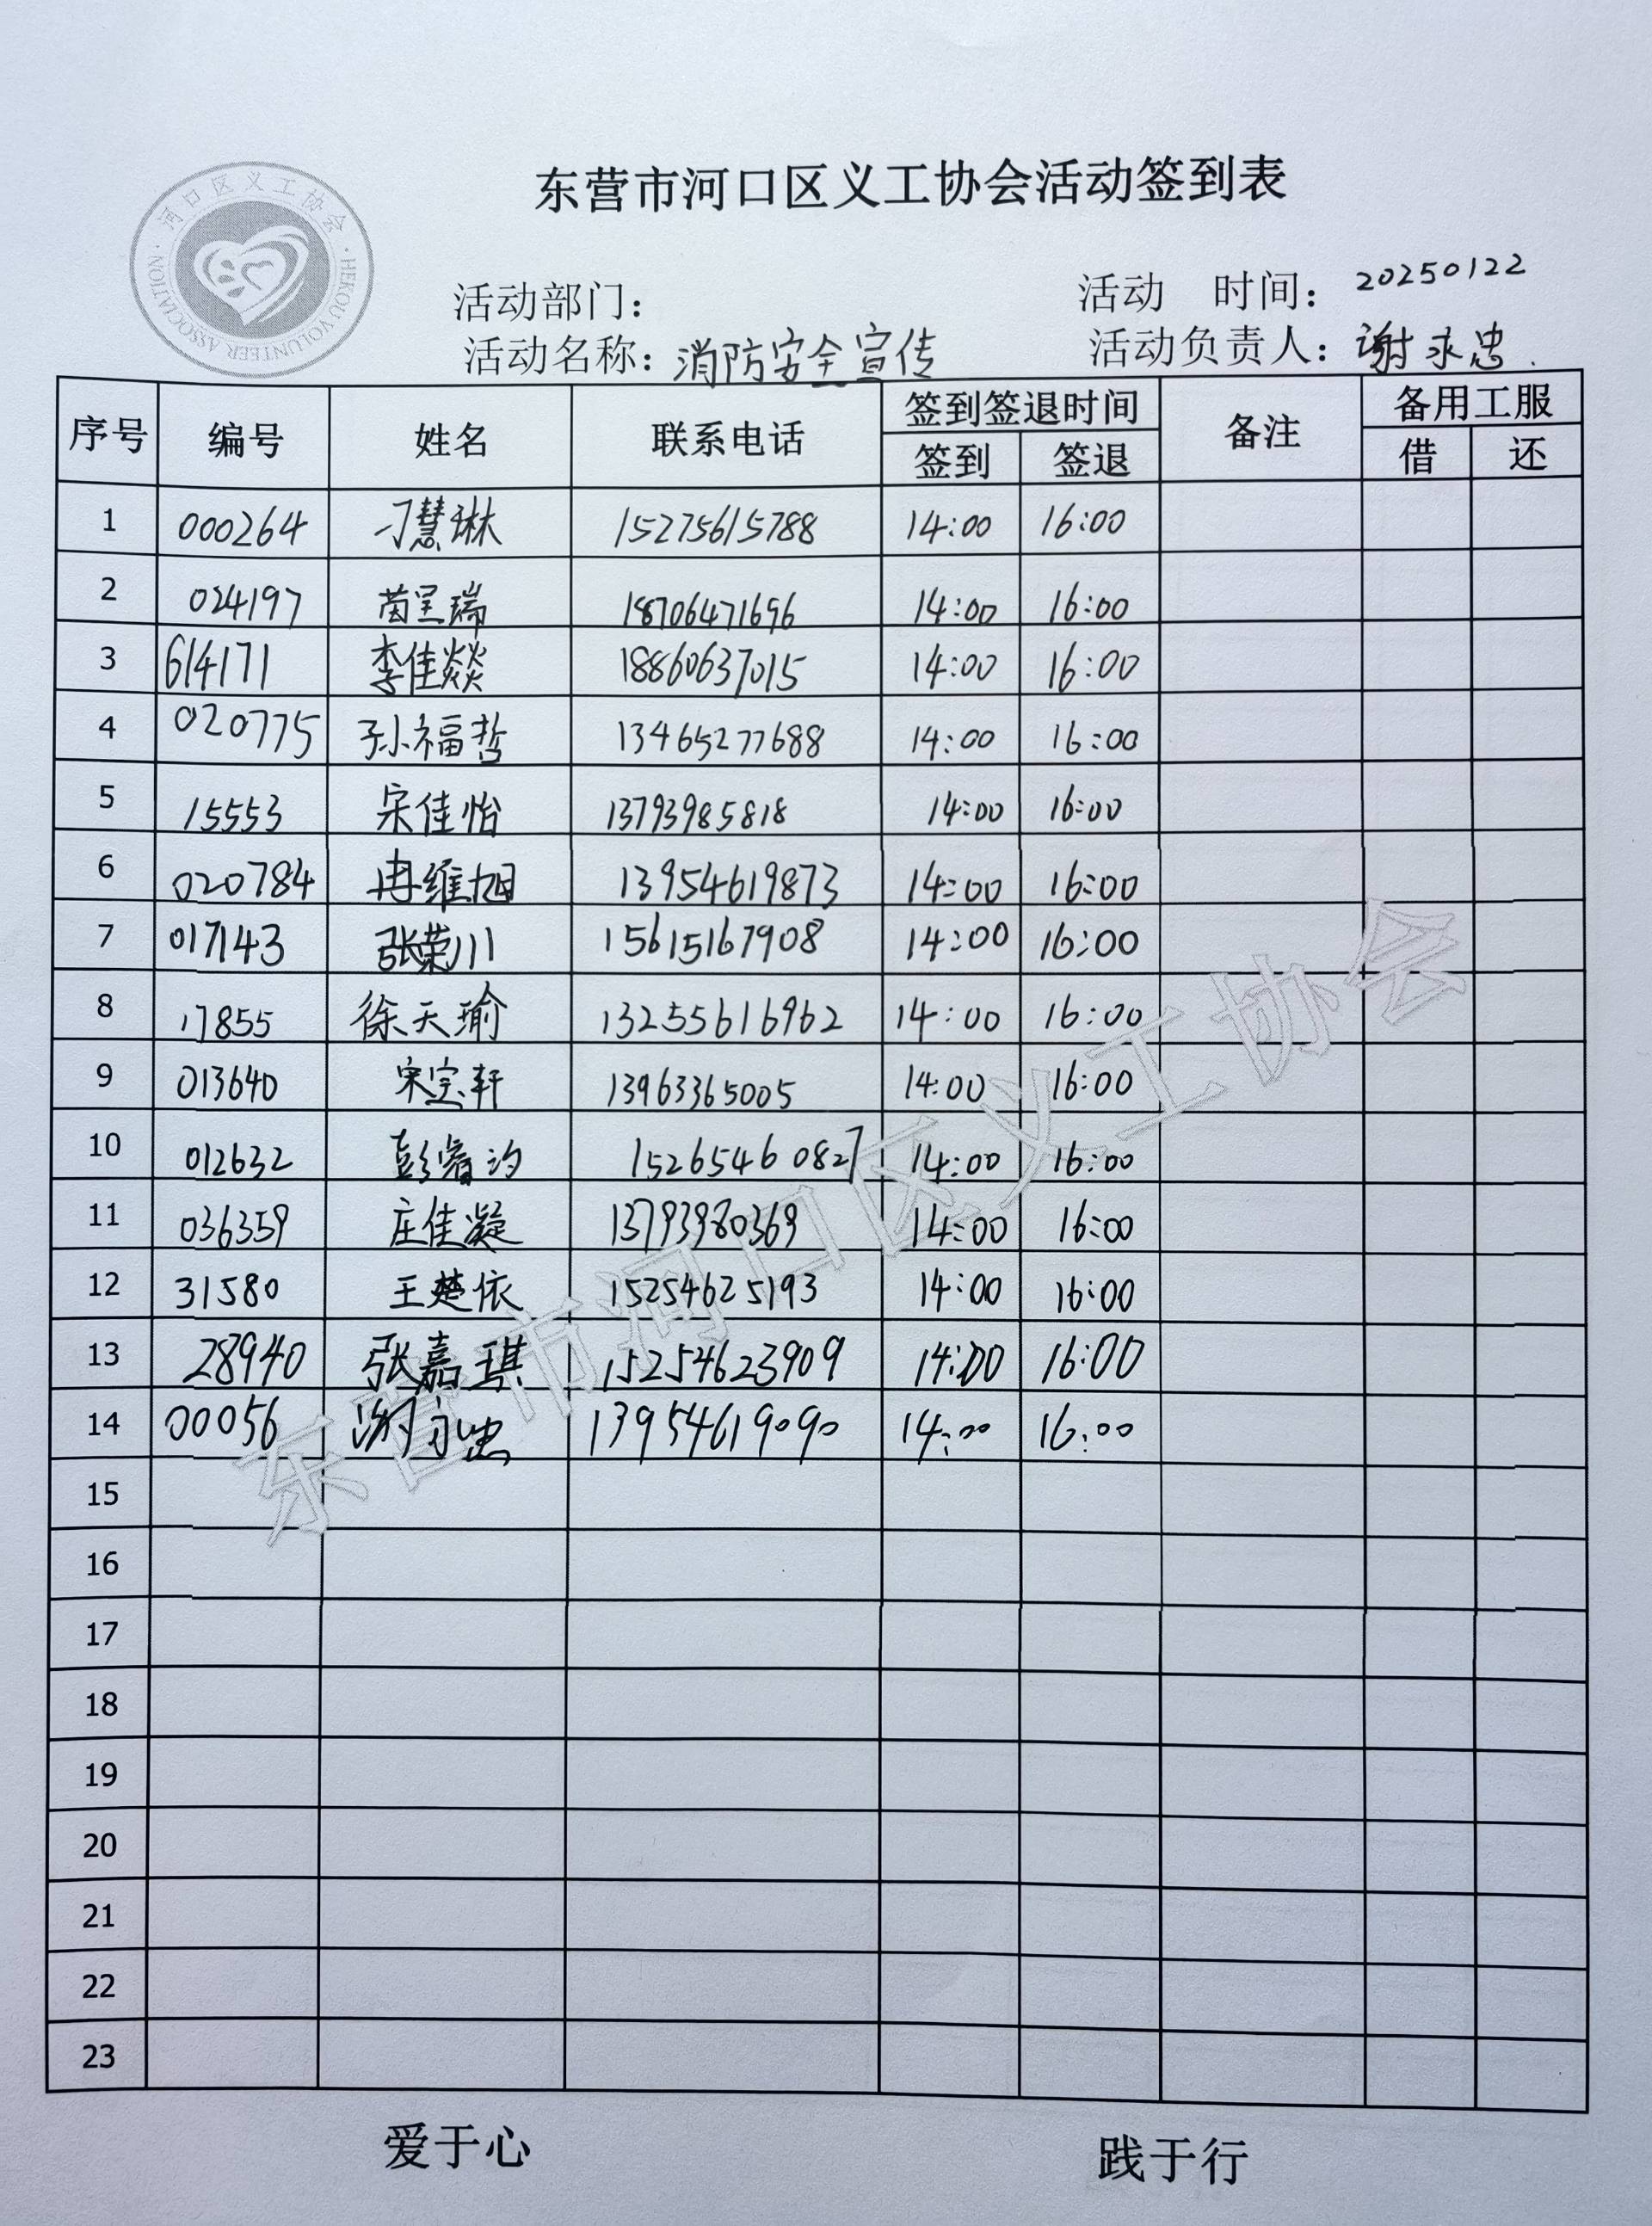 东营市河口区义工协会活动签到表
河口区义工协会
HEKOU VOLUNTEER ASSOCIATION
活动部门： 活动 时间：20250122
活动名称：消防安全宣传 活动负责人：谢永忠.
序号 编号 姓名 联系电话 签到签退时间 备注 备用工服
签到 签退 借 还
1 000264 刁慧琳 15275615788 14:00 16:00
2 024197 苘呈瑞 18706471696 14:00 16:00
3 614171 李佳燚 18860637015 14:00 16:00
4 020775 孙福哲 13465277688 14:00 16:00
5 15553 宋佳怡 13793985818 14:00 16:00
6 020784 冉维旭 13954619873 14:00 16:00
7 017143 张荣川 15615167908 14:00 16:00
8 17855 徐天瑜 13255616962 14:00 16:00
9 013640 宋宝轩 13963365005 14:00 16:00
10 012632 彭睿汋 15265460827 14:00 16:00
11 036359 庄佳凝 13793980369 14:00 16:00
12 31580 王楚依 15254625193 14:00 16:00
13 28940 张嘉琪 15254623909 14:00 16:00
14 00056 谢永忠 13954619090 14:00 16:00
15
16
17
18
19
20
21
22
23
东营市河口区义工协会
爱于心 践于行